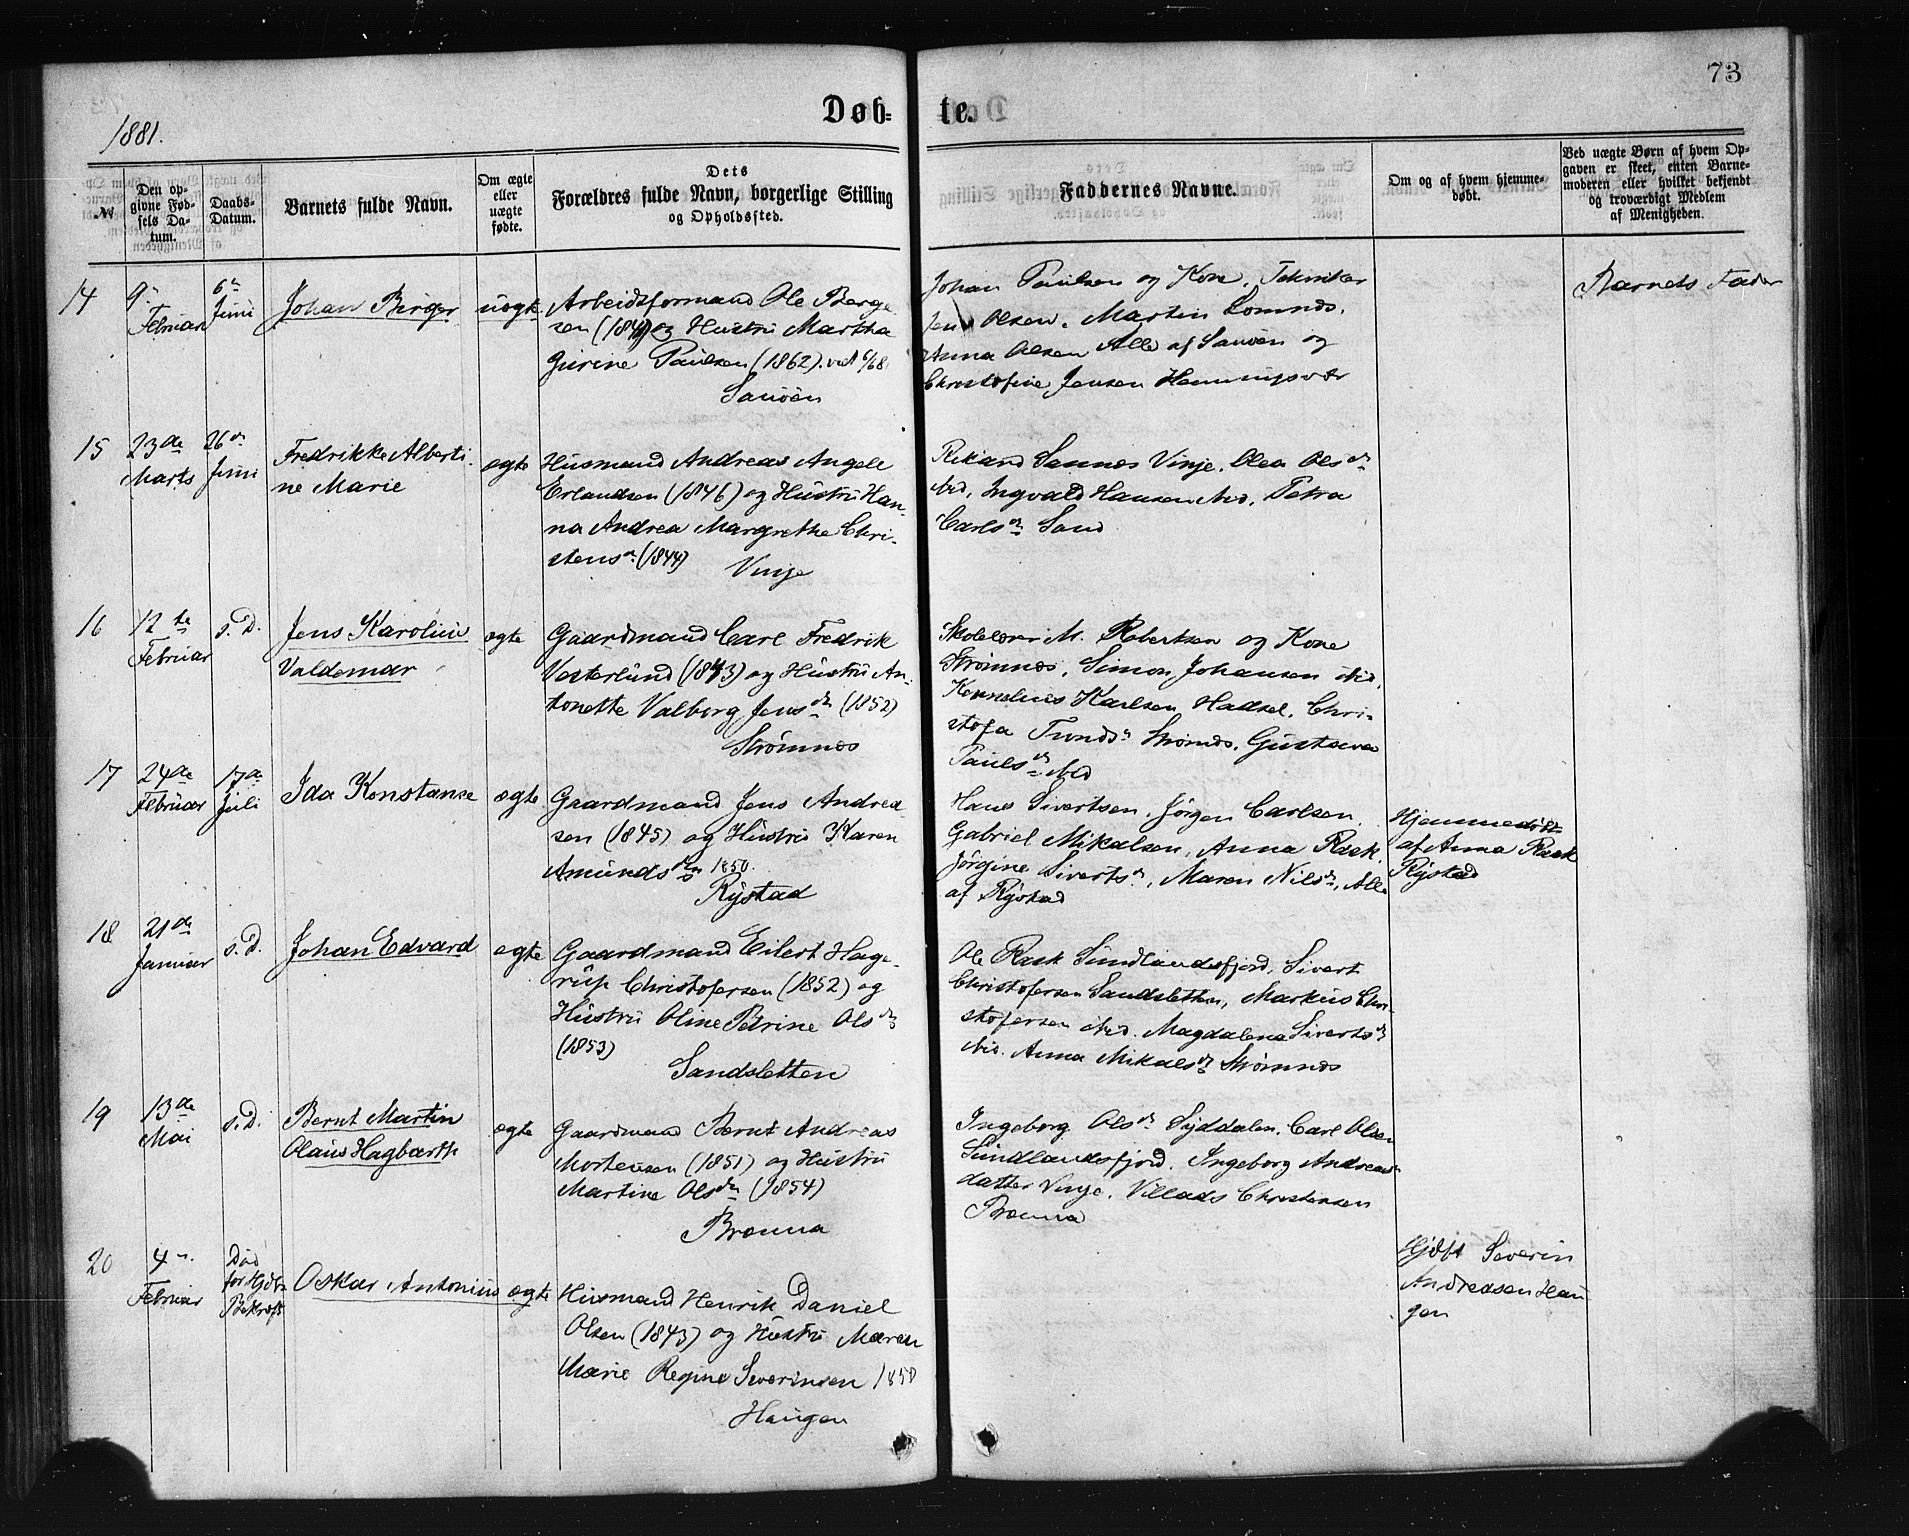 73
Døb- te.
1881.
№
Den op-
givne Fød-
sels Da-
tum.
Daabs-
Datum.
Barnets fulde Navn.
Om ægte
eller
uægte
fødte.
Dets
Forældres fulde Navn, borgerlige Stilling
og Opholdssted.
Faddernes Navne.
Om og af hvem hjemme-
døbt.
Ved uægte Børn af hvem Op-
gaven er skeet, enten Barne-
moderen eller hvilket bekjendt
og troværdigt Medlem
af Menigheden.
14
9.
Februar
6te
Juni
Johan Birger
uægte
Arbeidsformand Ole Berge
sen og Hustru Martha
Gurine Paulsen (1862).
Sanøen
Johan Paulsen og Kone. Tekniker
Olsen. Martin Lomnæs.
Anna Olsen Alle af Sanøen og
Christofine Jensen Henningsvær
Barnets Fader
15
23de
Marts
26de
Juni
Fredrikke Alberti-
ne Marie
ægte
Husmand Andreas Angele
Erlandsen (1846) og Hustru Han-
na Andrea Margrethe Chri-
stensd. (1844)
Vinje
Rikard Sannæs Vinje. Olea Olsdr
ibid, Ingvald Hansen ibid. Petra
Carlsdr Sand
16
12te
Februar
s. D.
Jens Karolius
Valdemar
ægte
Gaardmand Carl Fredrik
Vesterlund (1843) og Hustru An-
tonette Valborg Jensdr (1852)
Strømnæs
Skolelærer M. Robertsen og Kone
Strømnæs, Simon Johansen ibid,
Kornelius Karlsen Hadsel. Chri-
stofa Strømnæs. Gustava
Paulsdr ibid
17
24de
Februar
17de
Juli
Ida Konstanse
ægte
Gaardmand Jens Andrea
sen (1845) og Hustru Karen
Amundsdtr 1850.
Rystad
Hans Sivertsen. Jørgen Carlsen.
Gabriel Mikalsen, Anna Rask.
Jørgine Sivertsdr, Maren Nilsdr, Alle
af Rystad
Hjemmedøbt
af Anna Rask
Rystad
18
21de
Januar
s. D.
Johan Edvard
ægte
Gaardmand Eilert Hage-
rup Christofersen (1852) og
Hustru Oline Petrine Olsdr
(1853)
Sandsletten
Ole Rask Sundlandsfjord, Sivert
Christofersen Sandsletten, Markus Chri-
stofersen ibid. Magdalena Sivertsdr
ibid. Anna Mikalsdr Strømnæs
19
13de
Mai
s. D.
Bernt Martin
Olaus Hagbarth
ægte
Gaardmand Bernt Andreas
Mortensen (1851) og Hustru
Martine Olsdtr (1854)
Brænna
Ingeborg Olsdr Syddalen. Carl Olsen
Sundlandsfjord. Ingeborg Andreas-
datter Vinje. Villads Christensen
Brænna
20
4.
Februar
Død
før Hjdbs
Bekræft
Oskar Antonius
ægte
Husmand Henrik Daniel
Olsen (1843) og Hustru Maren
Marie Regine Severinsen 1850
Haugen
Hjdbt Severin
Andreasen Hau-
gen